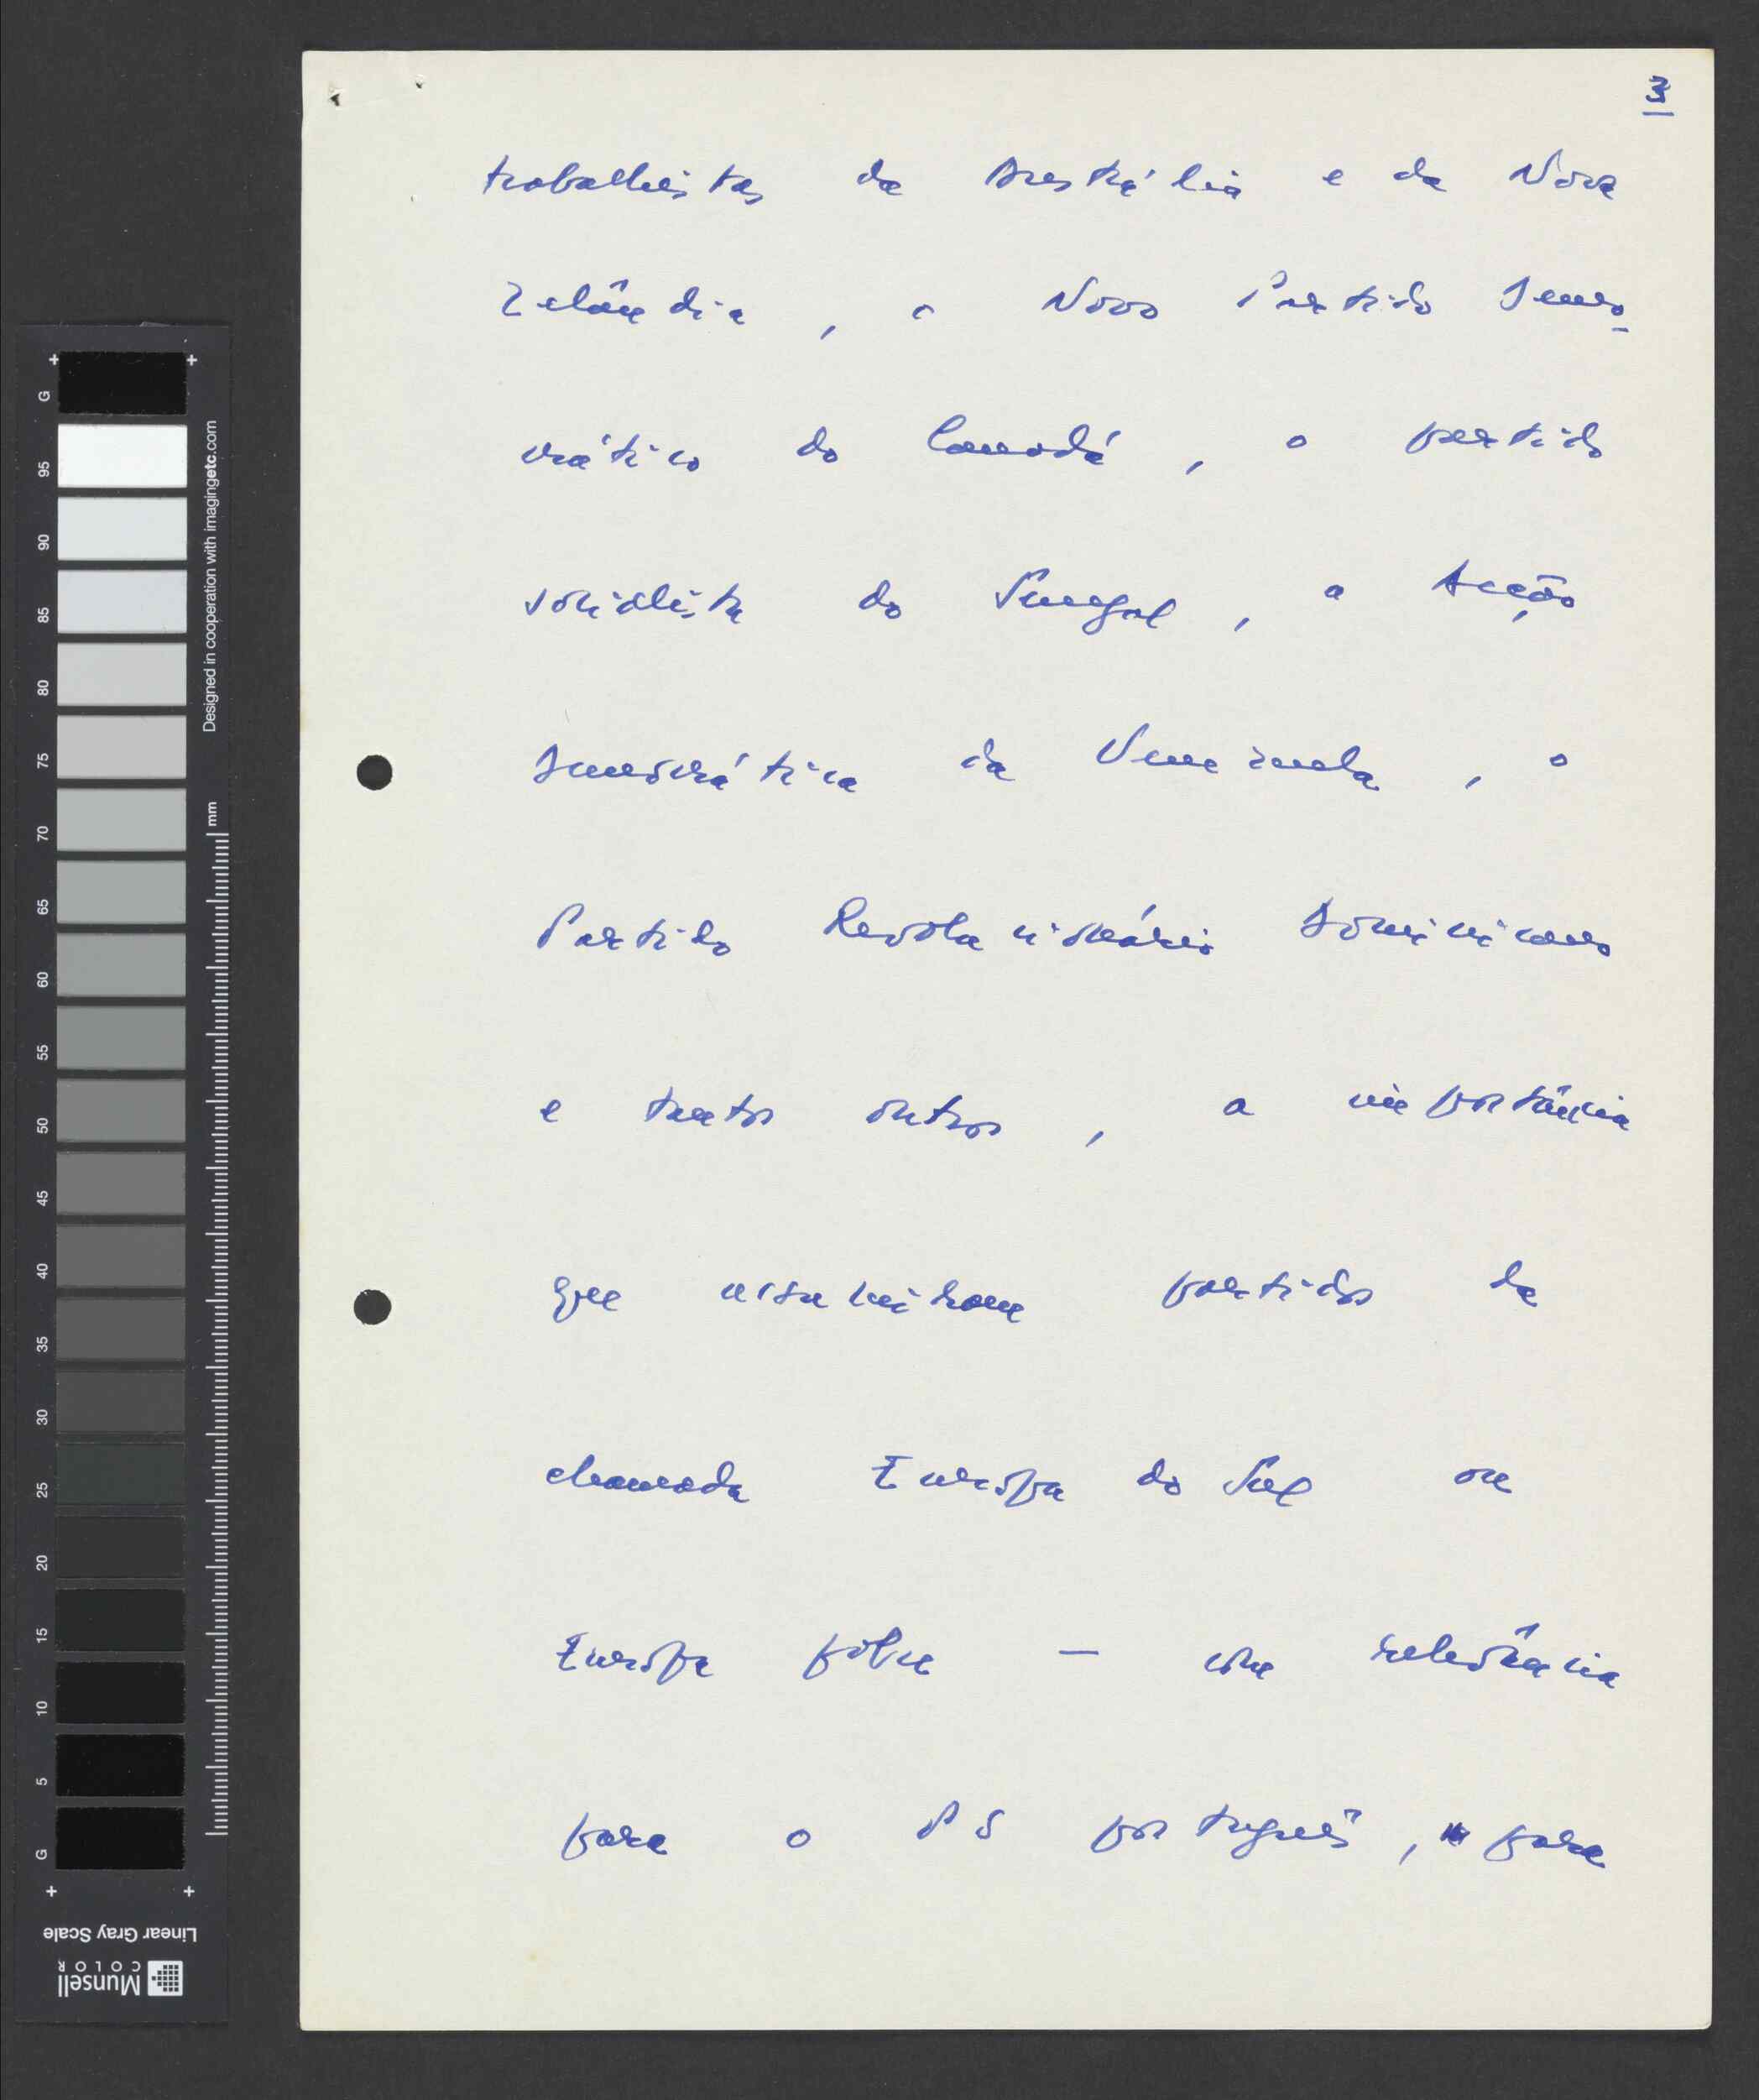 3
trabalhistas da Austrália e da Nova
Zelândia, o Novo Partido Demo-
crático do Canadá, o partido
socialista do Senegal, a Acção
Democrática da Venezuela, o
Partido Revolucionário Dominicano
e tantos outros, a importância
que assumiram partidos da
chamada Europa do Sul ou
Europa pobre — com relevância
para o PS português, para
G
95
90
85
80
75
70
65
60
55
50
45
40
35
30
25
20
15
10
5
G
mm
Designed in cooperation with imagingetc.com
Linear Gray Scale
Munsell
COLOR